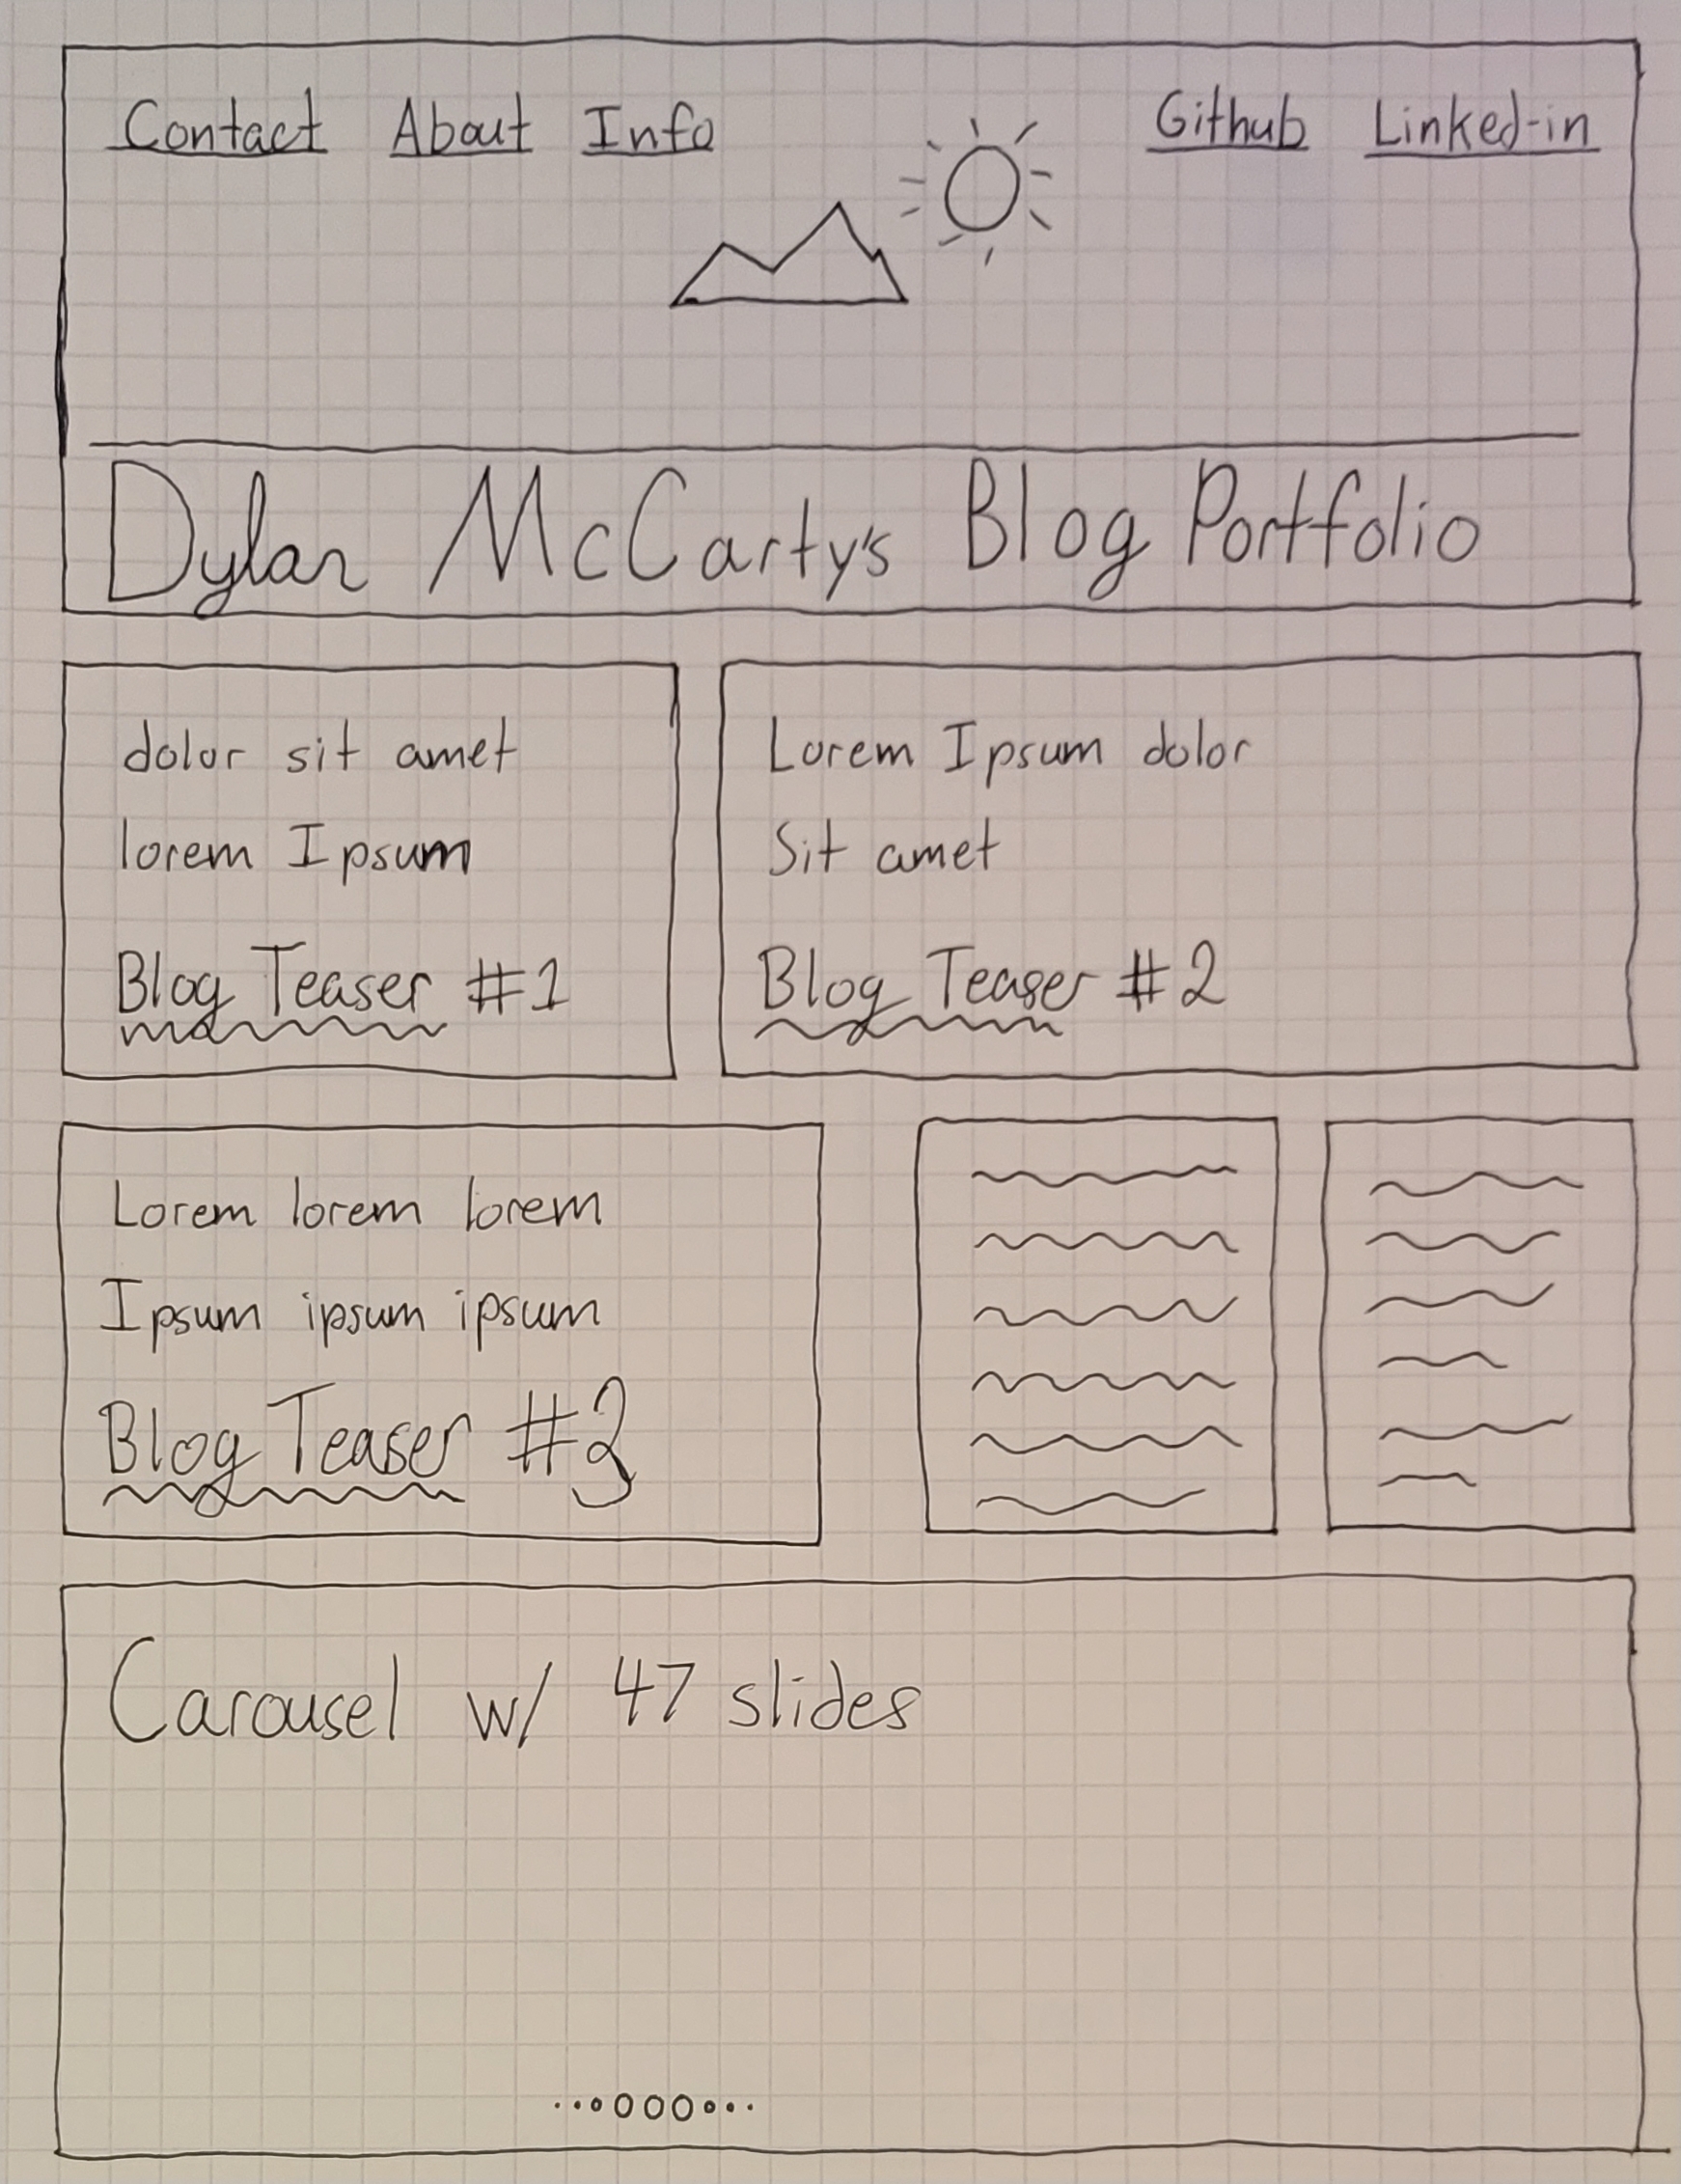 Contact About Info Github Linked-in
Dylan McCarty's Blog Portfolio
dolor sit amet
lorem Ipsum
Blog Teaser #1
Lorem Ipsum dolor
Sit amet
Blog Teaser #2
Lorem lorem lorem
Ipsum ipsum ipsum
Blog Teaser #3
Carousel w/ 47 slides